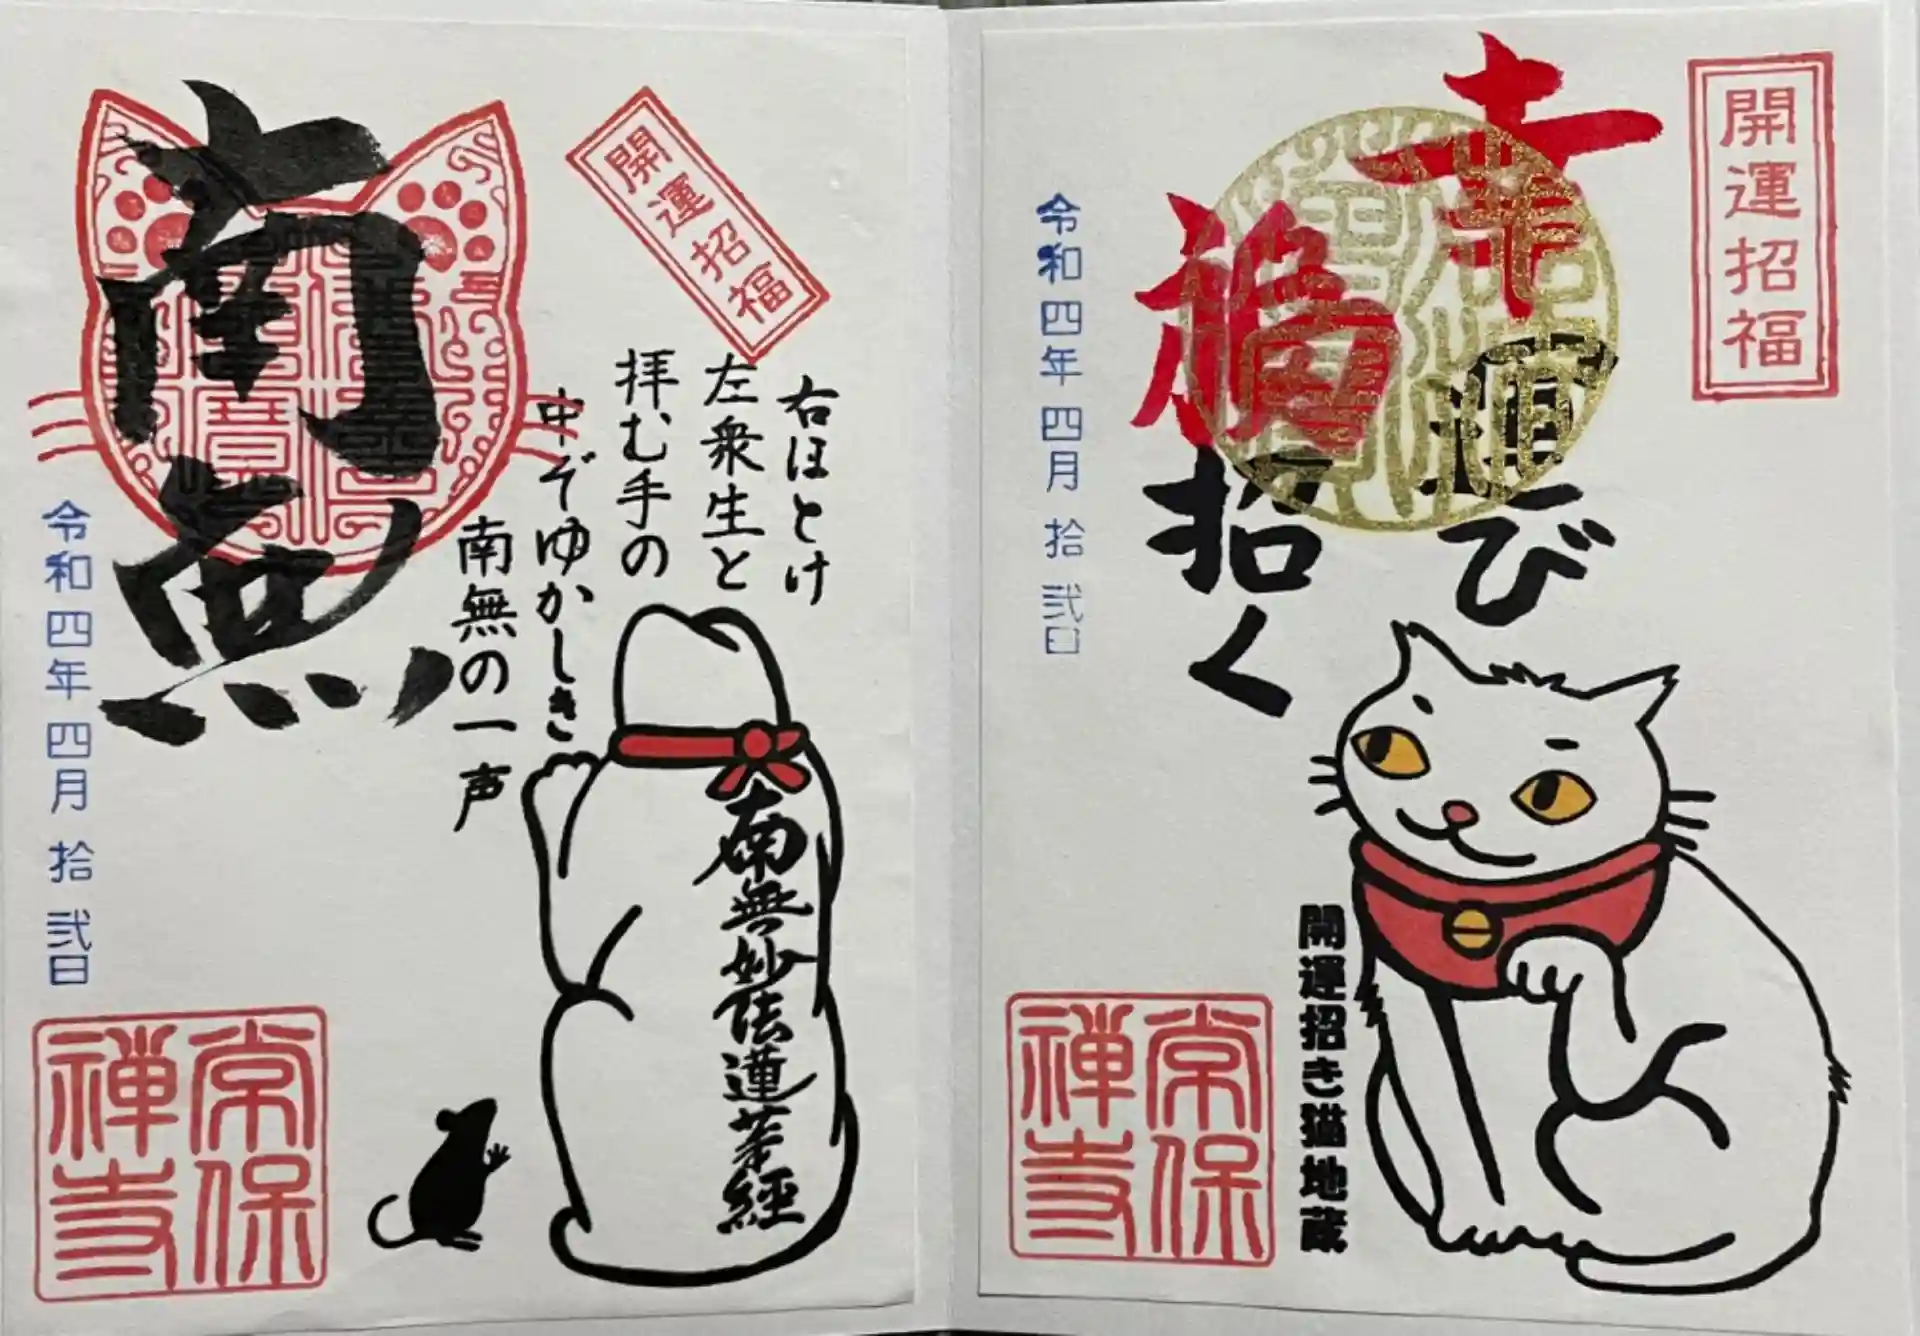 開運招福
幸運び
福招く
令和四年四月拾弐日
開運招き猫地蔵
常保
禅寺
開運招福
右ほとけ
左衆生と
拝む手の
中ぞゆかしき
南無の一声
南無
令和四年四月拾弐日
南無妙法蓮華経
常保
禅寺